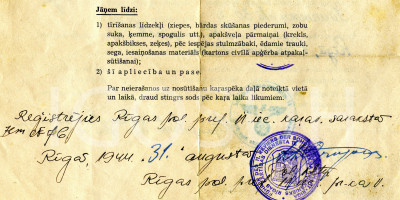 Jāņem līdzi:
1) tīrīšanas līdzekļi (ziepes, bārdas skūšanas piederumi, zobu
suka, ķemme, spogulis utt.), apakšveļa pārmaiņai (krekls,
apakšbikses, zeķes), pēc iespējas stulmzābaki, ēdamie trauki,
sega, iesaiņošanas materiāls (kartons civilā apģērba atpakaļ-
sūtīšanai);
2) šī apliecība un pase.
Par neierašanos uz nosūtīšanu karaspēka daļā noteiktā vietā
un laikā, draud stingrs sods pēc kaŗa laika likumiem.
Reģistrējies Rīgas pol. pref. 11 iec. kaŗav. sarakstā
Rīgā, 1944. 31. augustā
Rīgas pol. pref.